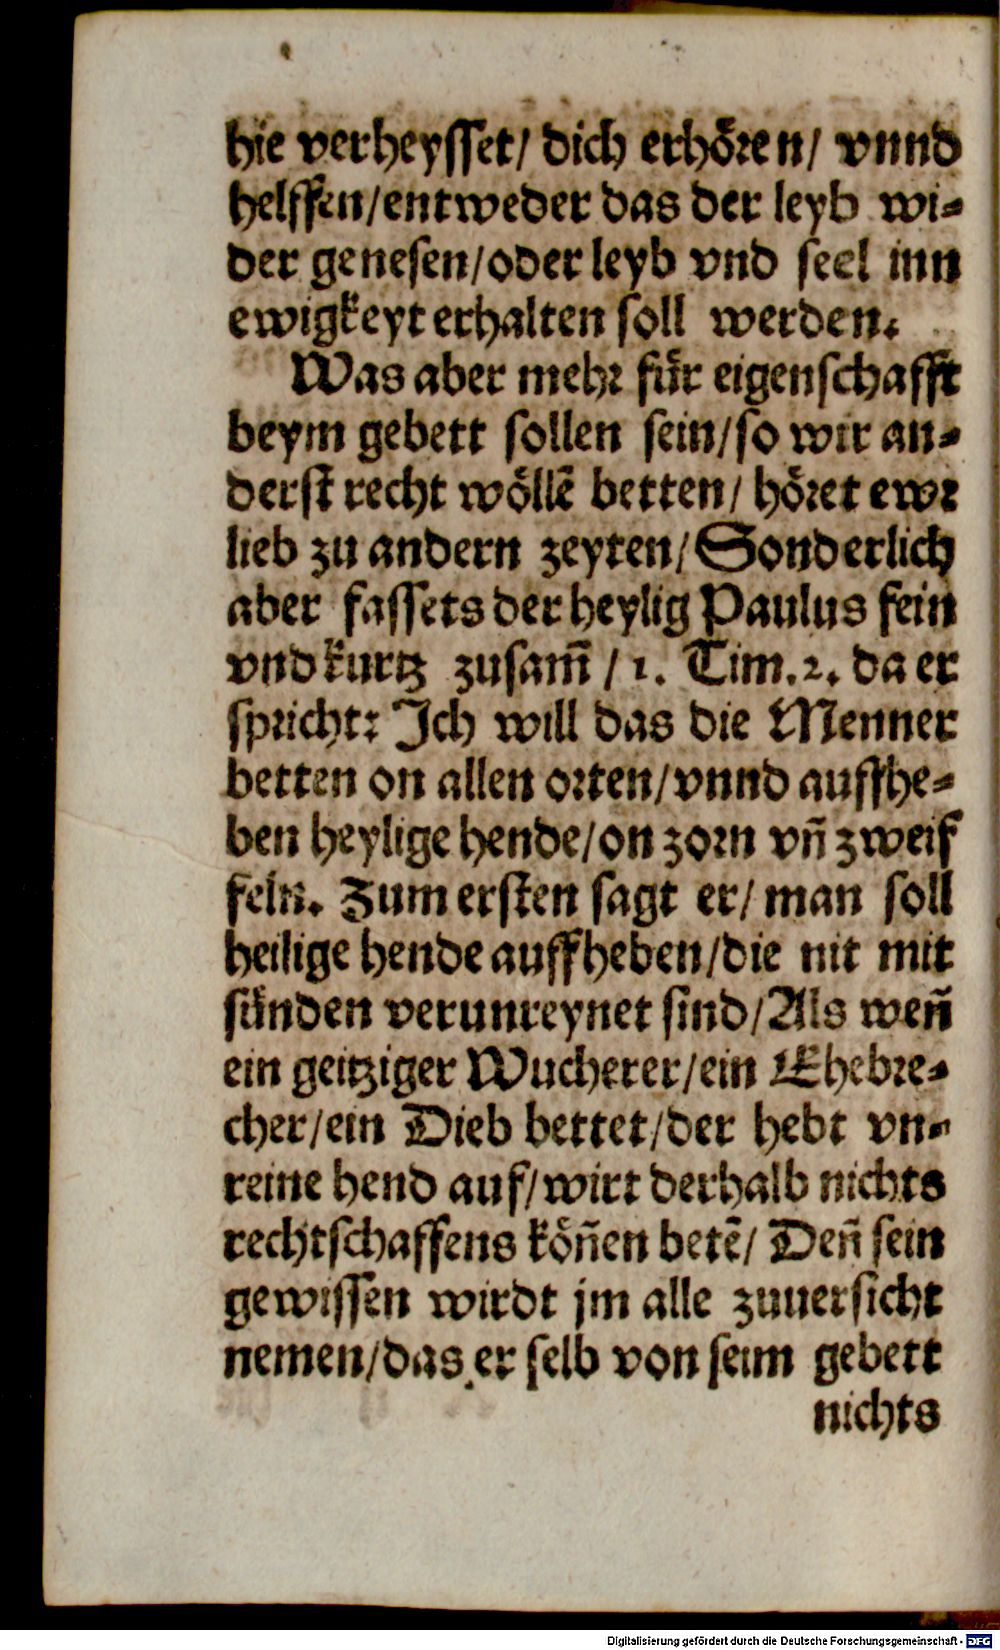 hie verheysset/ dich erhören/ vnnd
helffen/entweder das der leyb wi-
der genesen/oder leyb vnd seel inn
ewigkeyt erhalten soll werden.
Was aber mehr für eigenschafft
beym gebett sollen sein/so wir an-
derst recht wöllē betten/ höret ewr
lieb zu andern zeyten/Sonderlich
aber fassets der heylig Paulus fein
vnd kurtz zusam̄ /1. Tim.2. da er
spricht: Ich will das die Menner
betten on allen orten/vnnd auffhe-
ben heylige hende/on zorn vn̄ zweif
feln. Zum ersten sagt er/ man soll
heilige hende auffheben/die nit mit
sünden verunreynet sind/Als wen̄
ein geitziger Wucherer/ein Ehebre-
cher/ein Dieb bettet/der hebt vn-
reine hend auf/wirt derhalb nichts
rechtschaffens kön̄en betē/ Den̄ sein
gewissen wirdt jm alle zuuersicht
nemen/das er selb von seim gebett
nichts
Digitalisierung gefördert durch die Deutsche Forschungsgemeinschaft - DFG